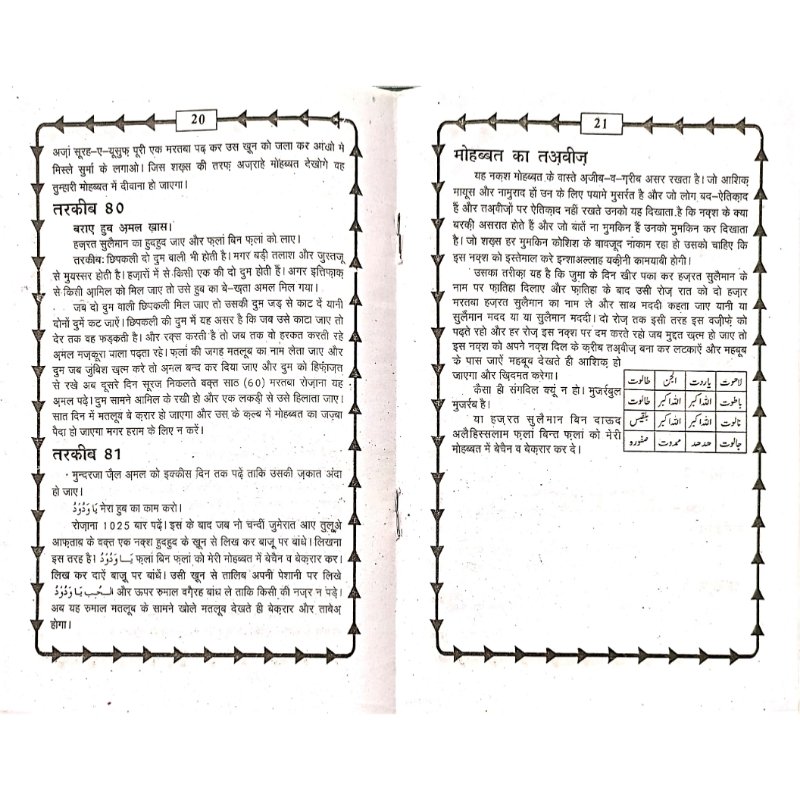 20
अज़ां सूरह-ए-यूसुफ़ पूरी एक मरतबा पढ़ कर उस खून को जला कर आंखों में
मिस्ले सुर्मा के लगाओ। जिस शख़्स की तरफ़ अज़राहे मोहब्बत देखोगे वह
तुम्हारी मोहब्बत में दीवाना हो जाएगा।
तरकीब 80
बराए हुब अ़मल ख़ास।
हज़रत सुलैमान का हुदहुद जाए और फ़लां बिन फ़लां को लाए।
तरकीब: छिपकली दो दुम वाली भी होती है। मगर बड़ी तलाश और जुस्तजू
से मुयस्सर होती है। हज़ारों में से किसी एक की दो दुम होती हैं। अगर इत्तिफ़ाक़
से किसी आ़मिल को मिल जाए तो उसे हुब का बे-खता अ़मल मिल गया।
जब दो दुम वाली छिपकली मिल जाए तो उसकी दुम जड़ से काट दें यानी
दोनों दुमें कट जाएें। छिपकली की दुम में यह असर है कि जब उसे काटा जाए तो
देर तक वह फड़कती है। और रक्स करती है तो जब तक वो हरकत करती रहे
अ़मल मज़कूरा पाला पढ़ता रहे। फ़लां की जगह मतलूब का नाम लेता जाए और
दुम जब जुंबिश खत्म करे तो अ़मल बन्द कर दिया जाए और दुम को हिफ़ाज़त
से रखे अब दूसरे दिन सूरज निकलते वक्त साठ (60) मरतबा रोज़ाना यह
अ़मल पढ़े। दुम सामने आ़मिल के रखी हो और एक लकड़ी से उसे हिलाता जाए।
सात दिन में मतलूब बे क़रार हो जाएगा और उस के क़ल्ब में मोहब्बत का जज़्बा
पैदा हो जाएगा मगर हराम के लिए न करें।
तरकीब 81
मुन्दरजा ज़ैल अ़मल को इक्कीस दिन तक पढ़ें ताकि उसकी ज़कात अंदा
हो जाए।
يَا وَدُوْدُ मेरा हुब का काम करो।
रोज़ाना 1025 बार पढ़ें। इस के बाद जब नो चन्दी जुमेरात आए तुलूअे
आफ़ताब के वक्त एक नक्श हुदहुद के खून से लिख कर बाजू पर बांधे। लिखना
इस तरह है। يَا وَدُوْدُ फ़लां बिन फ़लां को मेरी मोहब्बत में बेचैन व बेक़रार कर।
लिख कर दाऐं बाजू पर बांधें। उसी खून से तालिब अपनी पेशानी पर लिखे
الحُب يَا وَدُوْدُ और ऊपर रुमाल वग़ैरह बांध ले ताकि किसी की नज़र न पड़े।
अब यह रुमाल मतलूब के सामने खोले मतलूब देखते ही बेक़रार और ताबेअ़
होगा।
21
मोहब्बत का तअ़वीज़
यह नक्श मोहब्बत के वास्ते अ़जीब-व-ग़रीब असर रखता है। जो आशिक़
मायूस और नामुराद हों उन के लिए पयामे मुसर्रत है और जो लोग बद-ऐतिक़ाद
हैं और तअ़वीज़ों पर ऐतिक़ाद नहीं रखते उनको यह दिखाता है कि नक्श के क्या
बरक़ी असरात होते हैं और जो बातें ना मुमकिन हैं उनको मुमकिन कर दिखाता
है। जो शख़्स हर मुमकिन कोशिश के बावजूद नाकाम रहा हो उसको चाहिए कि
इस नक्श को इस्तेमाल करे इन्शाअल्लाह यक़ीनी कामयाबी होगी।
उसका तरीक़ा यह है कि जुमा के दिन खीर पका कर हज़रत सुलैमान के
नाम पर फ़ातिहा दिलाए और फ़ातिहा के बाद उसी रोज़ रात को दो हज़ार
मरतबा हज़रत सुलैमान का नाम ले और साथ मददी कहता जाए यानी या
सुलैमान मदद या या सुलैमान मददी। दो रोज़ तक इसी तरह इस वज़ीफ़े को
पढ़ते रहो और हर रोज़ इस नक्श पर दम करते रहो जब मुद्दत खत्म हो जाए तो
इस नक्श को अपने नक्श दिल के क़रीब तअ़वीज़ बना कर लटकाऐं और महबूब
के पास जाऐं महबूब देखते ही आशिक़ हो
जाएगा और ख़िदमत करेगा।
कैसा ही संगदिल क्यूं न हो। मुजर्रबुल
मुजर्रब है।
या हज़रत सुलैमान बिन दाऊद
अलैहिस्सलाम फ़लां बिन्त फ़लां को मेरी
मोहब्बत में बेचैन व बेक़रार कर दे।
لاھوت یاروت الجن طالوت
باطوت اللہ اکبر اللہ اکبر طالوت
نالوت اللہ اکبر اللہ اکبر بلقیس
جالوت حدحد ممدوت صفورہ